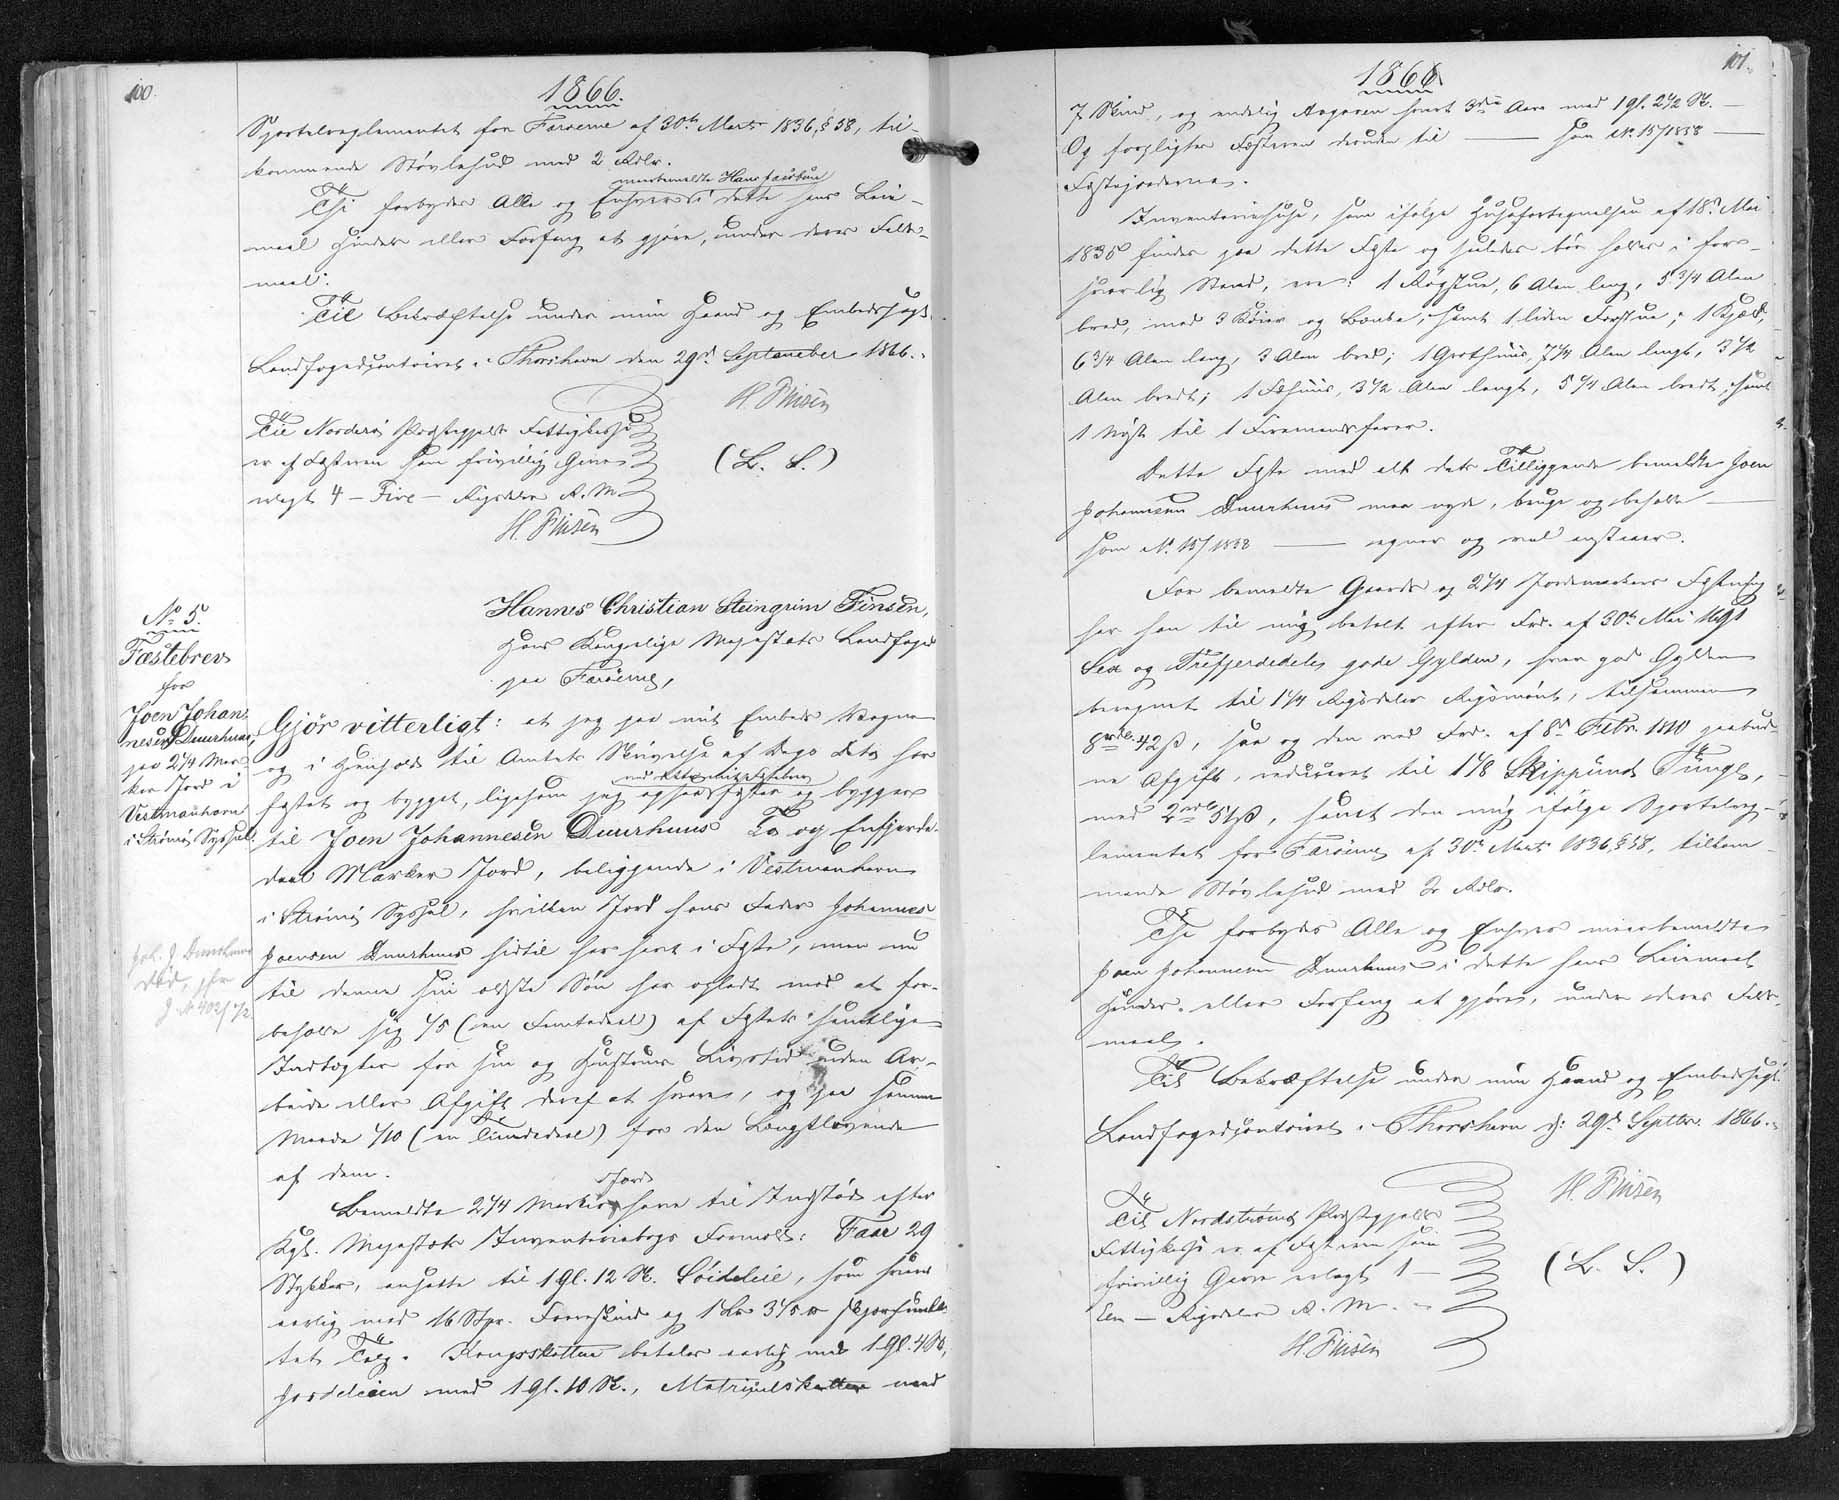 100.
1866.
Sportelreglementet for Færøerne af 30te Marts 1836, § 58, til-
kommende Støvlehud med 2 Rdlr.
Thi forbydes Alle og Enhver meerbemeldte Hans Jacobsen i dette hans Leie-
maal Hinder eller Forfang at gjøre, under deres Falds-
maal.
Til Bekræftelse under min Haand og Embedssegl.
Landfogedcontoiret i Thorshavn den 29d September 1866.
H. Finsen
(L. S.)
Til Norderø Præstegjelds Fattigkasse
er af Fæsteren som frivillig Gave
erlagt 4 – Fire – Rigsdaler R. M.
H. Finsen
No 5.
Fæstebrev
for
Joen Johan-
nesen Duurhuus
paa 2 1/4 Mar-
ker Jord i
Vestmanhavn
i Strømø Syssel.
Joh. J. Duurhuus
død, jfr
J. No 402/72
Hannes Christian Steingrim Finsen,
Hans Kongelige Majestæts Landfoged
paa Færøerne,
Gjør vitterligt: at jeg paa mit Embeds Vegne
og i Henhold til Amtets Skrivelse af Dags Dato har
fæstet og bygget, ligesom jeg ogsaa ved dette mit Fæstebrev fæster og bygger
til Joen Johannesen Duurhuus To og Enfjerde-
deel Marker Jord, beliggende i Vestmanhavn
i Strømø Syssel, hvilken Jord hans Fader Johannes
Joensen Duurhuus hidtil har havt i Fæste, men nu
til denne sin ældste Søn har opladt mod at for-
beholde sig 1/5 (een Femtedeel) af Fæstets samtlige
Indtægter for sin og Hustrues Livstid uden Ar-
beide eller Afgift deraf at svare, og paa samme
Maade 1/10 (en Tiendedeel) for den Længstlevende
af dem.
Bemeldte 2 1/4 Marker Jord have til Indstød efter
Kgl. Majestæts Inventariebogs Formeld: Faar 29
Stykker, ansatte til 1 Gl. 12 Sk. Söideleie, som svares
aarlig med 16 Stpr. Faareskind og 1 Lv 3 1/5 lb skjørsmel-
tet Talg. Kongsskatten betales aarlig med 1 Gl. 4 Sk.,
Jordeleien med 1 Gl. 10 Sk., Matriculskatten med
101.
1866
7 Skind, og endelig Angaven hvert 3die Aar med 1 gl. 2 1/2 Sk. –
Og forpligter Fæsteren desuden til — som No 15/1838 —
Fæstejordernes.
Inventariehuse, som ifølge Huusfortegnelsen af 18d Mai
1835 findes paa dette Fæste og saaledes bør holdes i for-
svarlig Stand, ere: 1 Røgstue, 6 Alen lang, 5 3/4 Alen
bred, med 3 Køier og Bænke, samt 1 liden Forstue; 1 Kjæld,
6 3/4 Alen lang, 3 Alen bred; 1 Grothuus, 7 1/4 Alen langt, 3 1/2
Alen bredt; 1 Fæhuus, 3 1/2 Alen langt, 5 1/4 Alen bredt, samt
1 Nøst til 1 Firemandsfarer.
Dette Fæste med alt dets Tilliggende bemeldte Joen
Johannesen Duurhuus maa nyde, bruge og beholde —
som No 15/1838 — egner og vel anstaaer.
For bemeldte Gaards og 2 1/4 Jordemarkers Fæstning
har han til mig betalt efter Frd. af 30te Mai 1691
Sex og Trefjerdedels gode Gylden, hver god Gylden
beregnet til 1 1/4 Rigsdaler Rigsmønt, tilsammen
8 rdlr. 42 ß, saa og den ved Frd. af 8d Febr. 1810 paabud-
ne Afgift, reduceret til 1 1/8 Skippund Tunge,
med 2 rdlr 51 ß, samt den mig ifølge Sportelreg-
lementet for Færøerne af 30te Marts 1836, § 58, tilkom-
mende Støvlehud med 2 Rdlr.
Thi forbydes Alle og Enhver meerbemeldte
Joen Johannesen Duurhuus i dette hans Leiemaal
Hinder eller Forfang at gjøre, under deres Falds-
maal.
Til Bekræftelse under min Haand og Embedssegl.
Landfogedcontoiret i Thorshavn d: 29d Septbr. 1866.
H. Finsen
(L. S.)
Til Nordstrømø Præstegjelds
Fattigkasse er af Fæsteren som
frivillig Gave erlagt 1 –
Een – Rigsdaler R. M.
H. Finsen